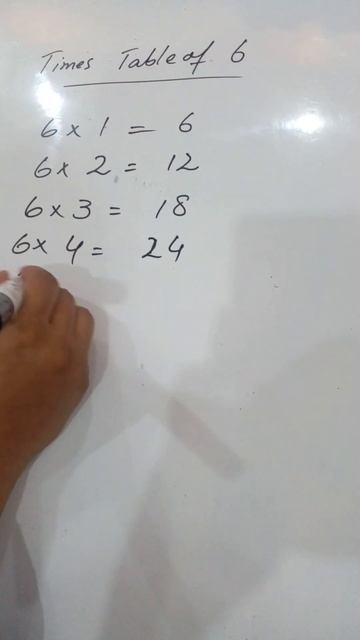 Times Table of 6
6 x 1 = 6
6 x 2 = 12
6 x 3 = 18
6 x 4 = 24